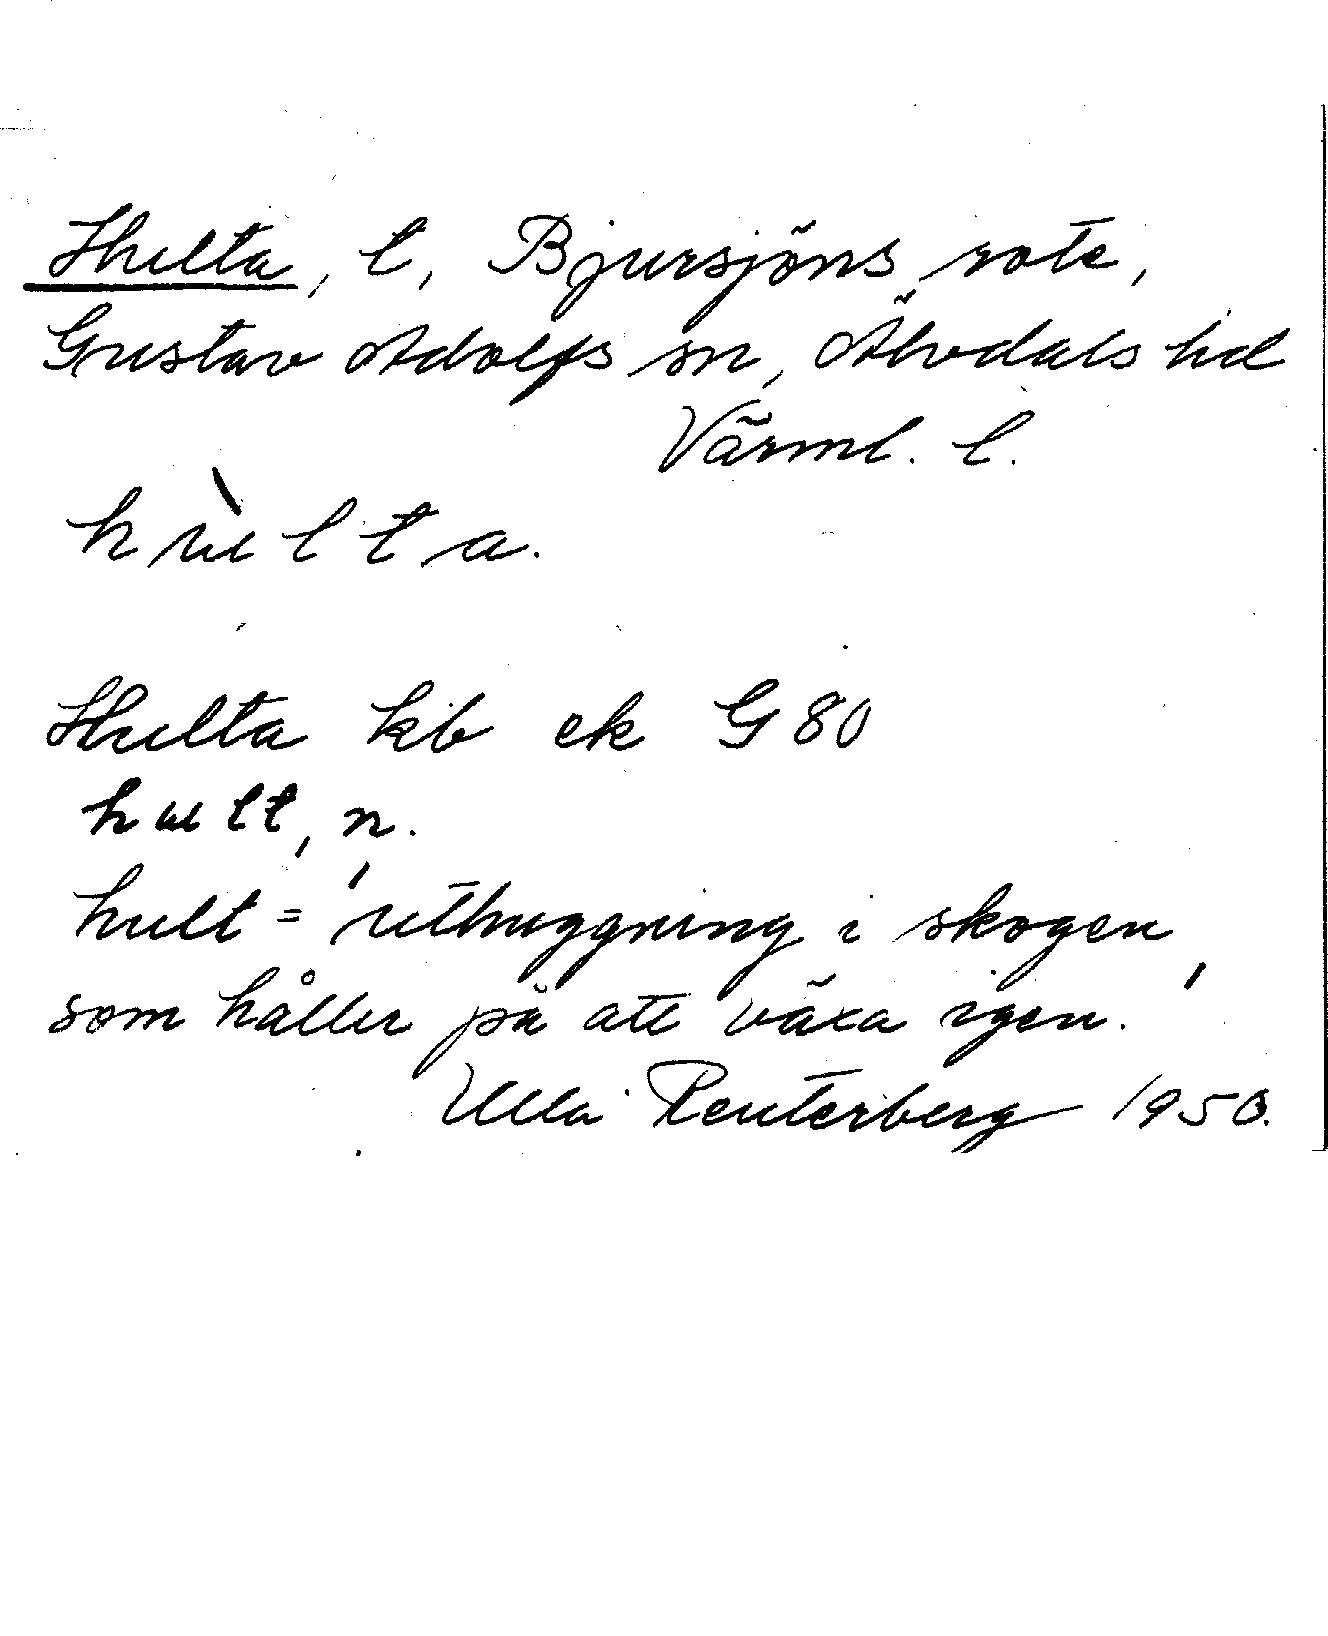 Hulta, t, Bjursjöns rote,
Gustav Adolfs sn, Älvdals hd
Värml. l.
hùlta.
Hulta kb ek G 80
hult, n.
hult = 'uthuggning i skogen,
som håller på att växa igen.'
Ulla Reuterberg 1950.